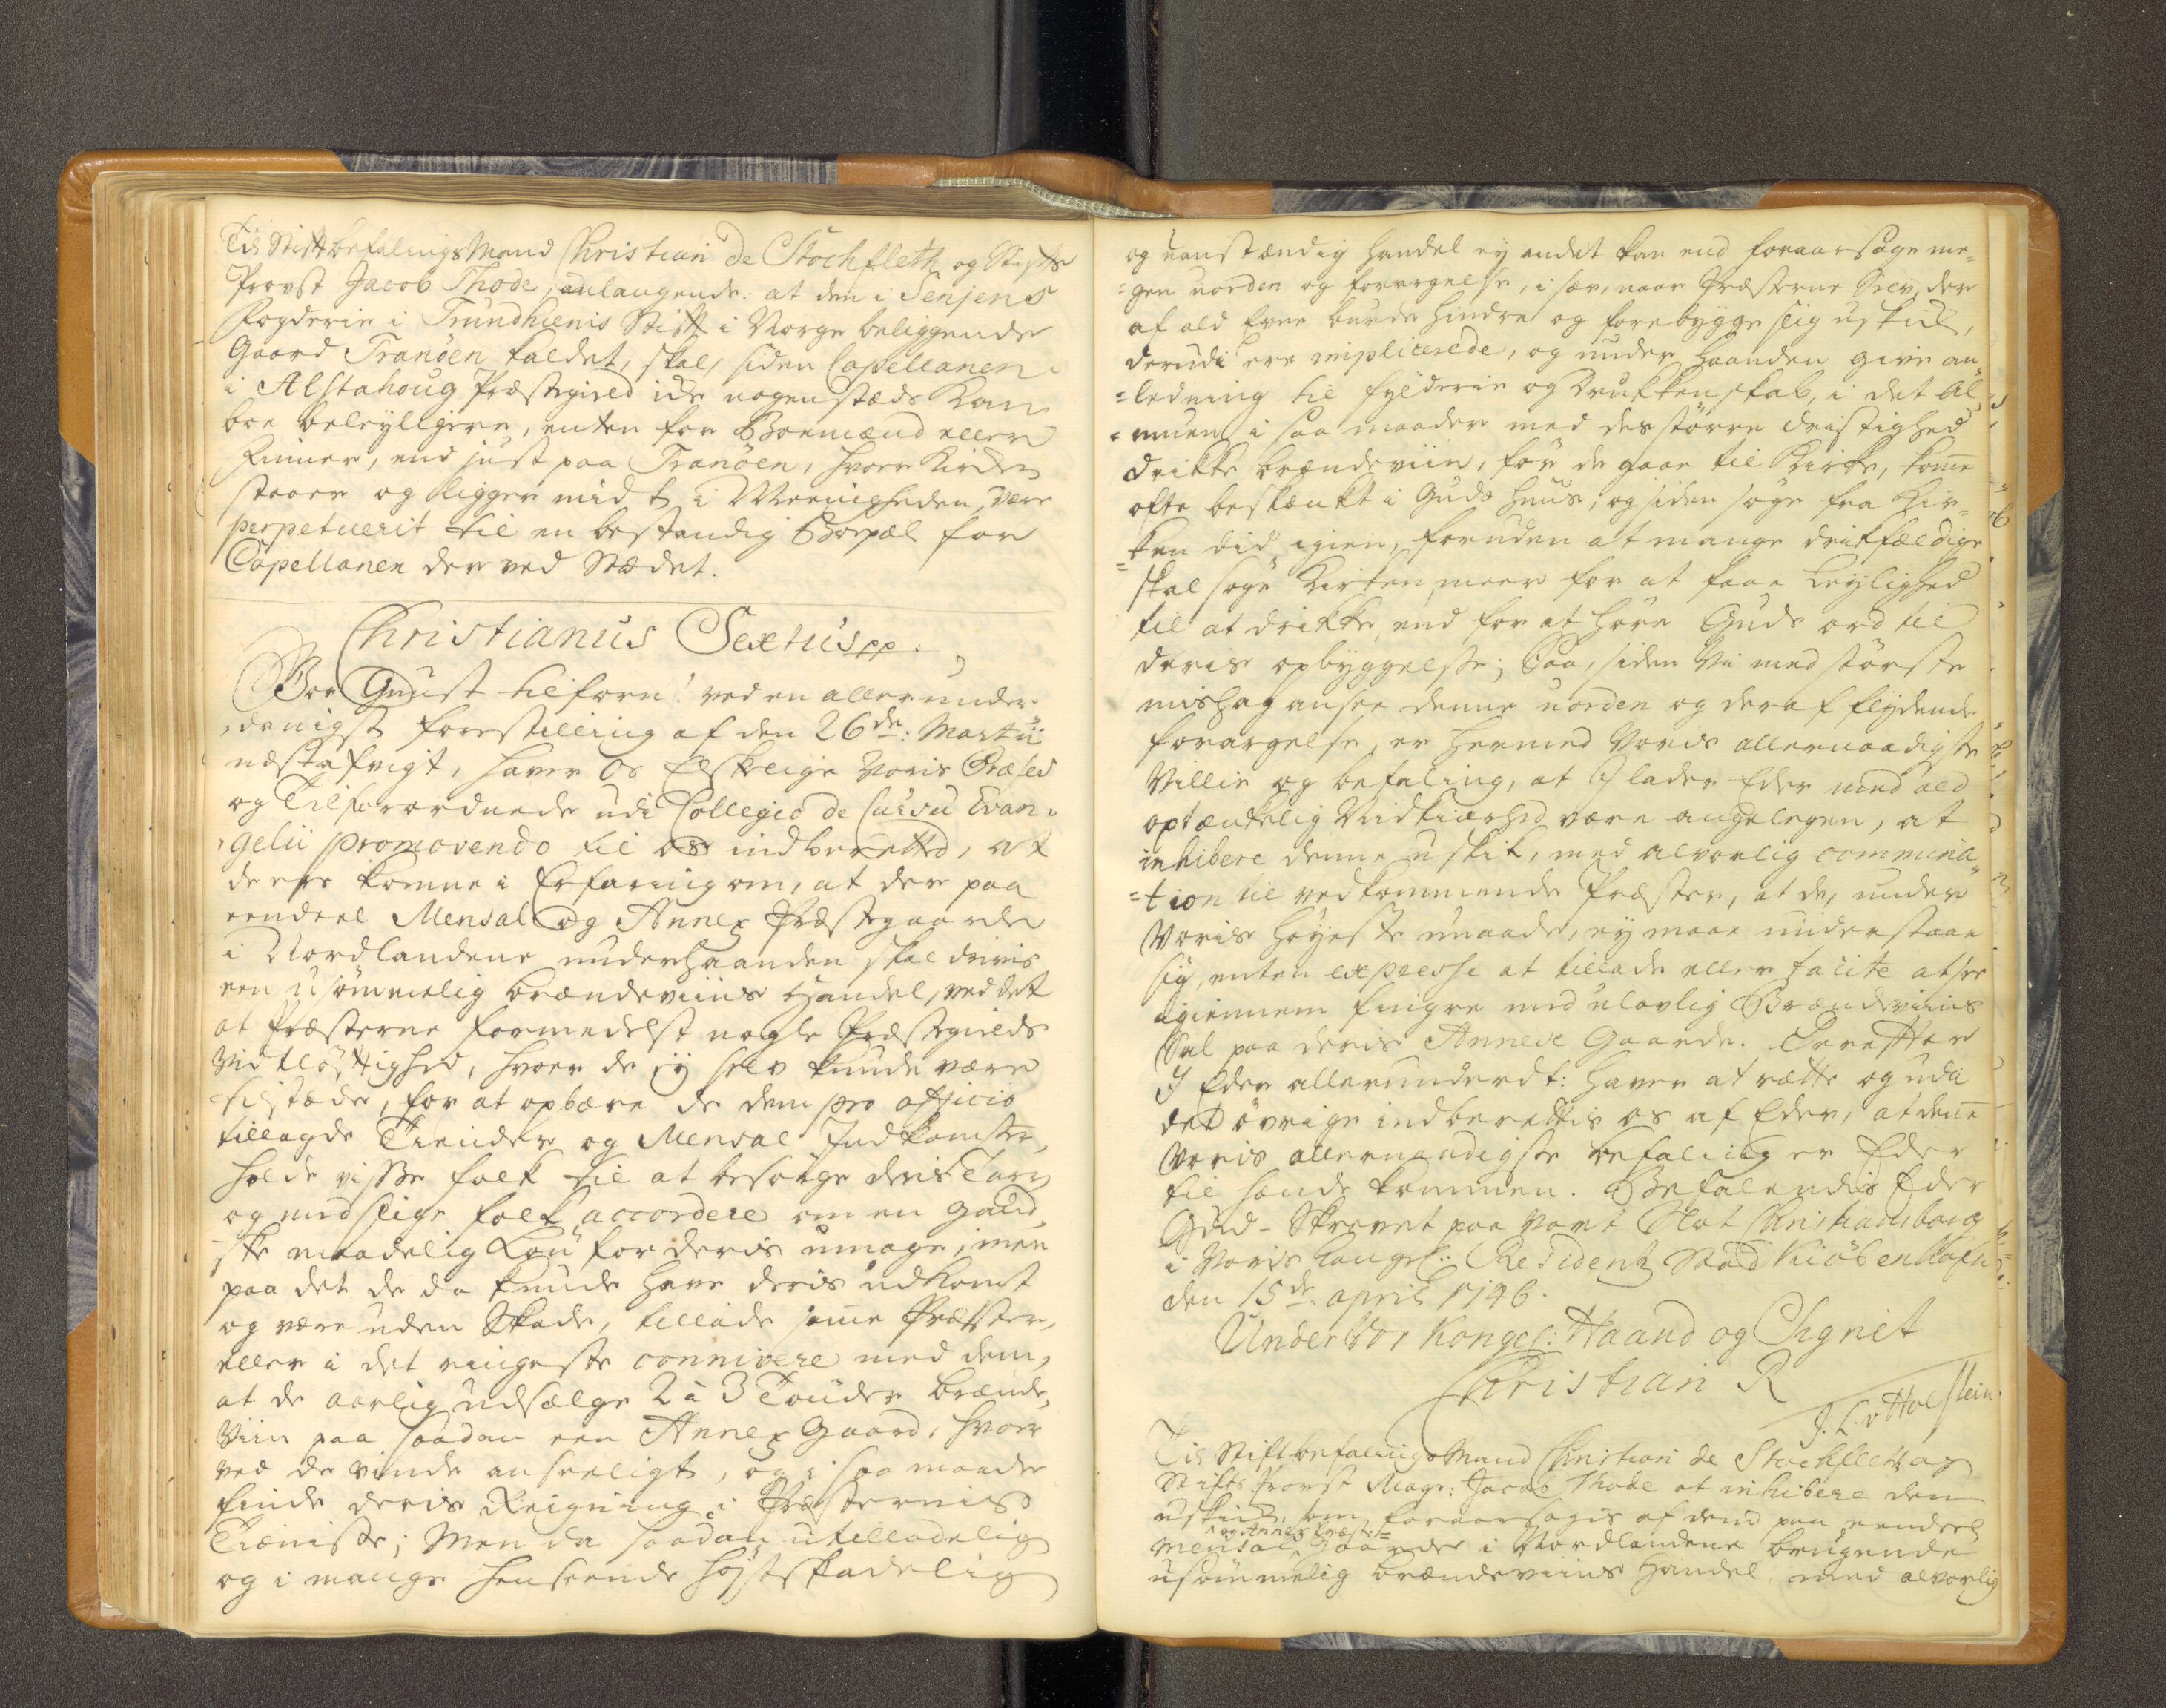 Til Stiftbefalings Mand Christian de Stochfleth og Stifts
Provst Jacob Thode, anlangende: at den i Senjens
Fogderie i Trundhiems Stift i Norge beliggende
Gaard Tranöen kaldet, skal, siden Capellanen
i Alstahoug Præstegield icke nogenstæds kan
boe beleyligere, enten for Boemænd eller
Finner, end just paa Tranöen, hvor Kirken
staaer og ligger midt i Meenigheden, være
perpetuerit til en bestandig Boepæl for
Capellanen der ved Stædet.
Christianus Sextus pp.
Vor Gunst tilforn! ved en allerunder-
danigst forestilling af den 26de: Martii
udstafrigt, haver Os Elskelige Voris Præses
og Tilforordnede udi Collegio de Cursu Evan-
gelii promovendo til os indberetted, at
de ere komne i Erfaring om, at der paa
eendeel Mensal og Annex Præstegaarde
i Nordlandene underhaanden skal drives
een usömmelig brændeviins Handel, ved det
at Præsterne formedelst nogle Præstegields
Vidtlöftighed, hvor de ey selv kunde være
tilstæde, for at opbære de dem pro officio
tillagde Tiender og Mensal Indkomster,
holde visse folk til at besörge deris Tarv
og med slige folk accordere om en gand-
ske maadelig Lön for deris umage, men
paa det de da kunde have deris udkomst
og være uden Skade, tillade samme Præster,
eller i det ringeste connivere med dem,
at de aarlig udsælge 2 à 3 Tönder brænde-
Viin paa saadan een Annex Gaard, hvor
ved de vinde anseeligt, og i saa maade
finde deris Reigning i Præsternes
Tieniste; Men da saadan utilladelig
og i mange henseende höystskadelig
og uanstændig handel ey andet kan end foraarsage me-
gen uorden og forargelse, i sær, naar Præsterne Selv, der
af ald Evne burde hindre og forebygge slig uskik,
derudi ere implicerede, og under haanden give an-
ledning til fylderie og Drukkenskab, i det Al-
muen i saa maader med des större dristighed
drikke brændeviin, för de gaae til Kirke, komme
ofte beskænkt i Guds huus, og siden söge fra Kir-
ken did igien, foruden at mange drikfældige
skal söge Kirken meer for at faae leylighed
til at drikke, end for at höre Guds ord til
deris opbyggelse; Saa, siden Vi med störste
mishag ansee denne uorden og deraf flydende
forargelse, er hermed Voris allernaadigste
Villie og befaling, at I lader Eder med ald
optænkelig Nidkiærhed være angelegen, at
inhibere denne uskik, med alvorlig commina-
tion til vedkommende Præster, at de, under
Voris höyeste unaade, ey maae understaae
sig, enten expresse at tillade eller tacite at see
igiennem fingre med ulovlig Brændeviins
Sal paa deris Annex Gaarde. Derefter
I Eder allerunderdt: haver at rette og udi
det övrige indberettis os af Eder, at denne
Voris allernaadigste befaling er Eder
til hænde kommen. Befalendis Eder
Gud. Skrevet paa Vort Slot Christiansborg
i Voris Kongel: Residentz Stad Kiöbenhafn
den 15de april 1746.
Under Vor Kongel: Haand og Signet
Christian R
J. L. v Holstein.
Til Stiftbefalings Mand Christian de Stochfleth og
Stifts Provst Magr: Jacob Thode at inhibere den
uskik, som foraarsagis af dend paa eendeel
og Annex Præste-
Mensal Gaarder i Nordlandene brugende
usömmelig brændeviins Handel, med alvorlig